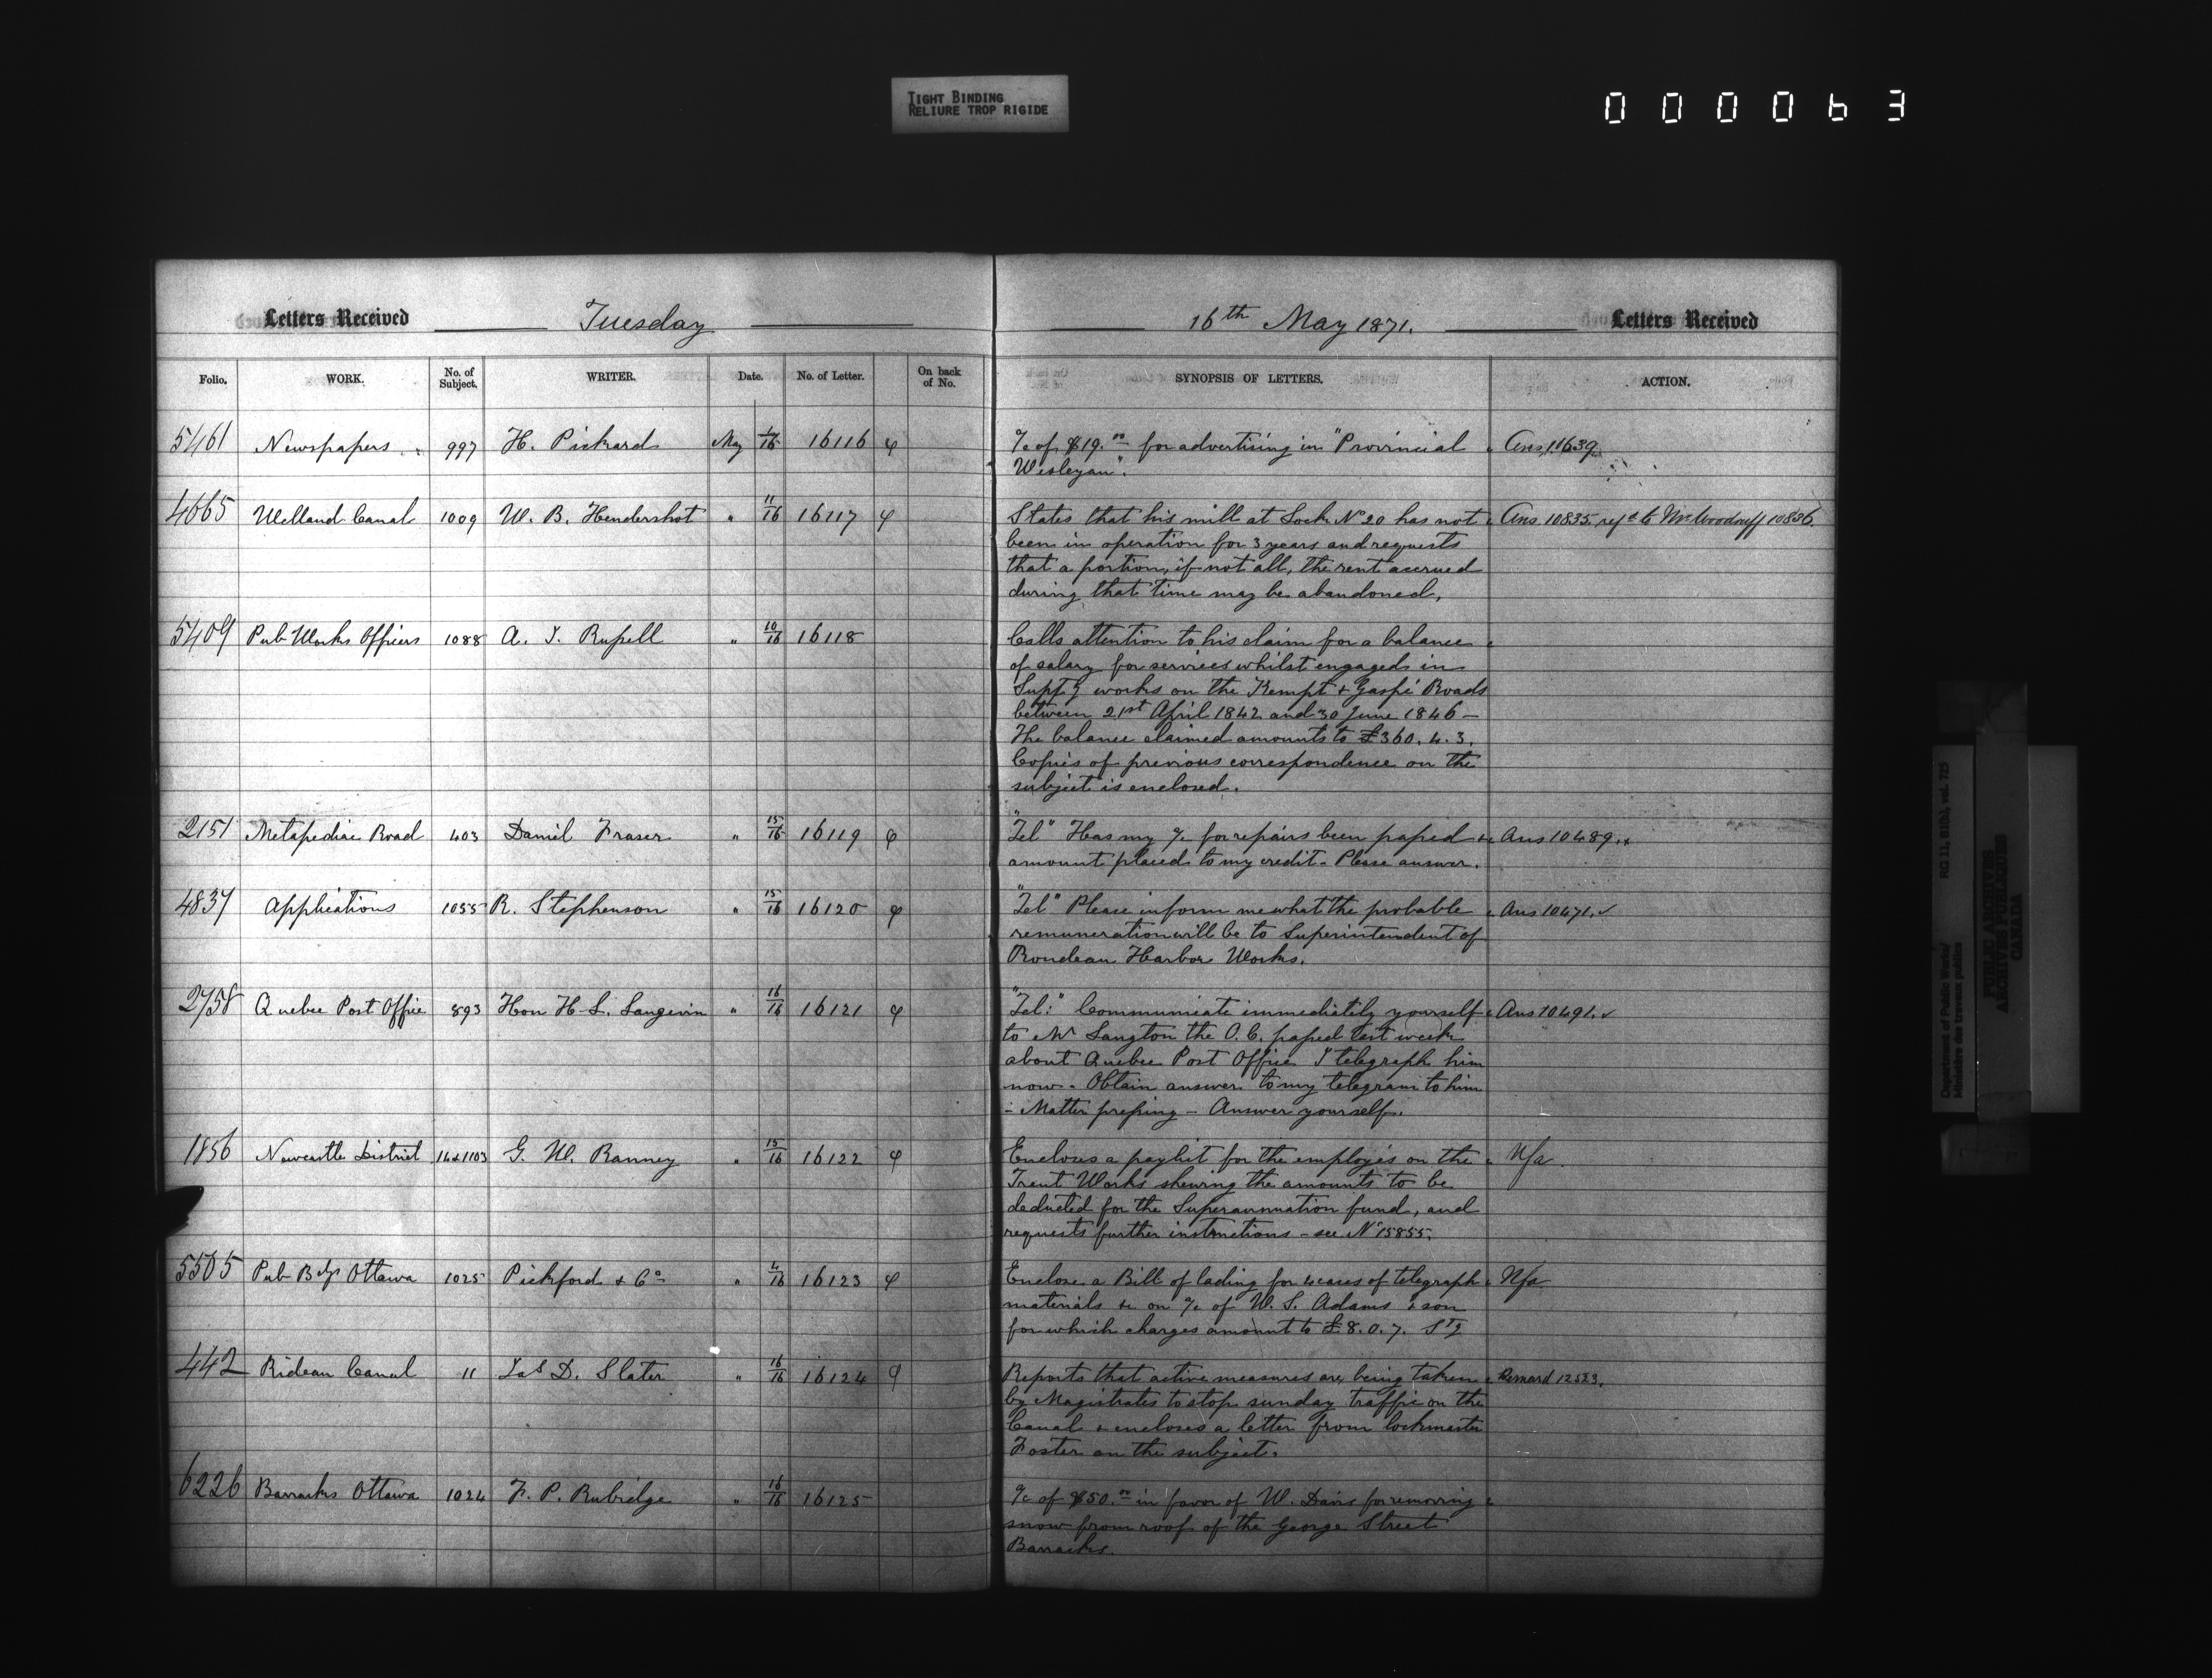 TIGHT BINDING
RELIURE TROP RIGIDE
000063
Letters Received Tuesday 16th May 1871. Letters Received
Folio. WORK. No. of Subject. WRITER. Date. No. of Letter. On back of No. SYNOPSIS OF LETTERS. ACTION.
5461 Newspapers 997 H. Pickard May 16 16116 φ a/c of $19.00 for advertising in "Provincial Ans. 11639
Wesleyan".
4665 Welland Canal 1009 W. B. Hendershot " 11/16 16117 φ States that his mill at Lock No 20 has not Ans. 10835. refd to Mr Woodruff 10836
been in operation for 3 years and requests
that a portion, if not all, the rent accrued
during that time may be abandoned.
5409 Pub Works Officers 1088 A. J. Russell " 10/16 16118 Calls attention to his claim for a balance
of salary for services whilst engaged in
Suptg works on the Kempt & Gaspé Roads
between 21st April 1842 and 30 June 1846 –
The balance claimed amounts to £360. 4. 3.
Copies of previous correspondence on the
subject is enclosed.
2151 Metapediac Road 403 Daniel Fraser " 15/16 16119 φ "Tel" Has my a/c for repairs been passed & Ans 10489.
amount placed to my credit – Please answer.
4837 Applications 1055 R. Stephenson " 15/16 16120 φ "Tel" Please inform me what the probable Ans 10471. ✓
remuneration will be to Superintendent of
Rondeau Harbor Works.
2758 Quebec Post Office 893 Hon H. L. Langevin " 16/16 16121 φ "Tel:" Communicate immediately yourself Ans 10491. ✓
to Mr Langton the O. C. passed last week
about Quebec Post Office I telegraph him
now – Obtain answer to my telegram to him
– Matter pressing – Answer yourself.
1856 Newcastle District 14&1103 G. W. Ranney " 15/16 16122 φ Encloses a paylist for the employés on the Nfa.
Trent Works shewing the amounts to be
deducted for the Superannuation fund, and
requests further instructions – see No 15855.
5505 Pub Bdgs Ottawa 1025 Pickford & Co " 4/16 16123 φ Enclose a Bill of lading for 4 cases of telegraph Nfa
materials &c on a/c of W. S. Adams & son
for which charges amount to £8. 0. 7. Stg
442 Rideau Canal 11 Jas D. Slater " 16/16 16124 φ Reports that active measures are being taken
by Magistrates to stop sunday traffic on the
Canal & encloses a letter from lockmaster
Foster on the subject.
6226 Barracks Ottawa 1024 F. P. Rubidge " 16/16 16125 a/c of $50.00 in favor of W. Davis for removing
snow from roof of the George Street
Barracks.
Department of Public Works/ RG 11, B1(b), vol. 725
Ministère des travaux publics
PUBLIC ARCHIVES
ARCHIVES PUBLIQUES
CANADA